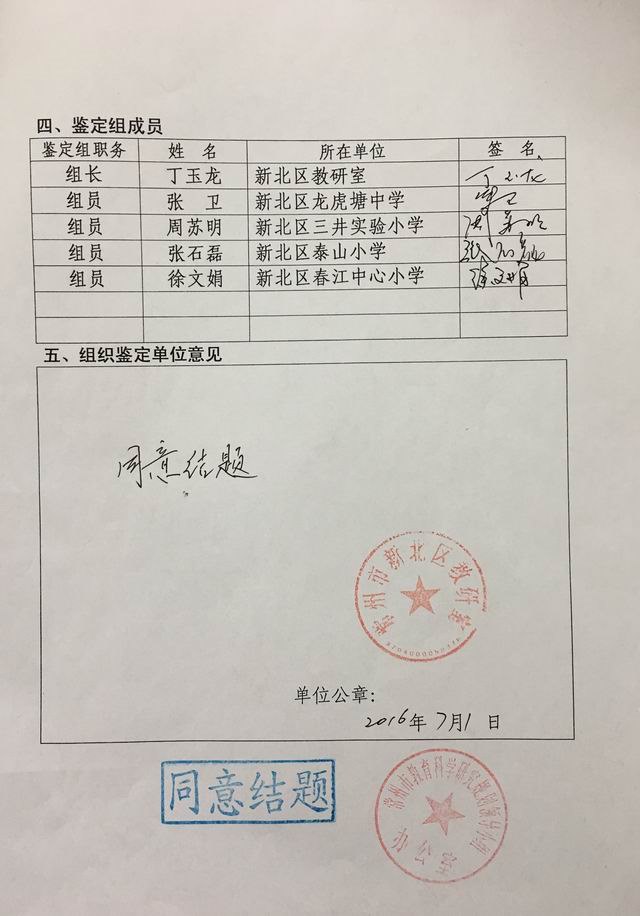 四、鉴定组成员
鉴定组职务 姓 名 所在单位 签 名
组长 丁玉龙 新北区教研室 丁玉龙
组员 张 卫 新北区龙虎塘中学
组员 周苏明 新北区三井实验小学 周苏明
组员 张石磊 新北区泰山小学 张石磊
组员 徐文娟 新北区春江中心小学 徐文娟
五、组织鉴定单位意见
同意结题
常州市新北区教研室
单位公章：
2016年7月1日
同意结题
常州市教育科学研究规划领导小组
办公室